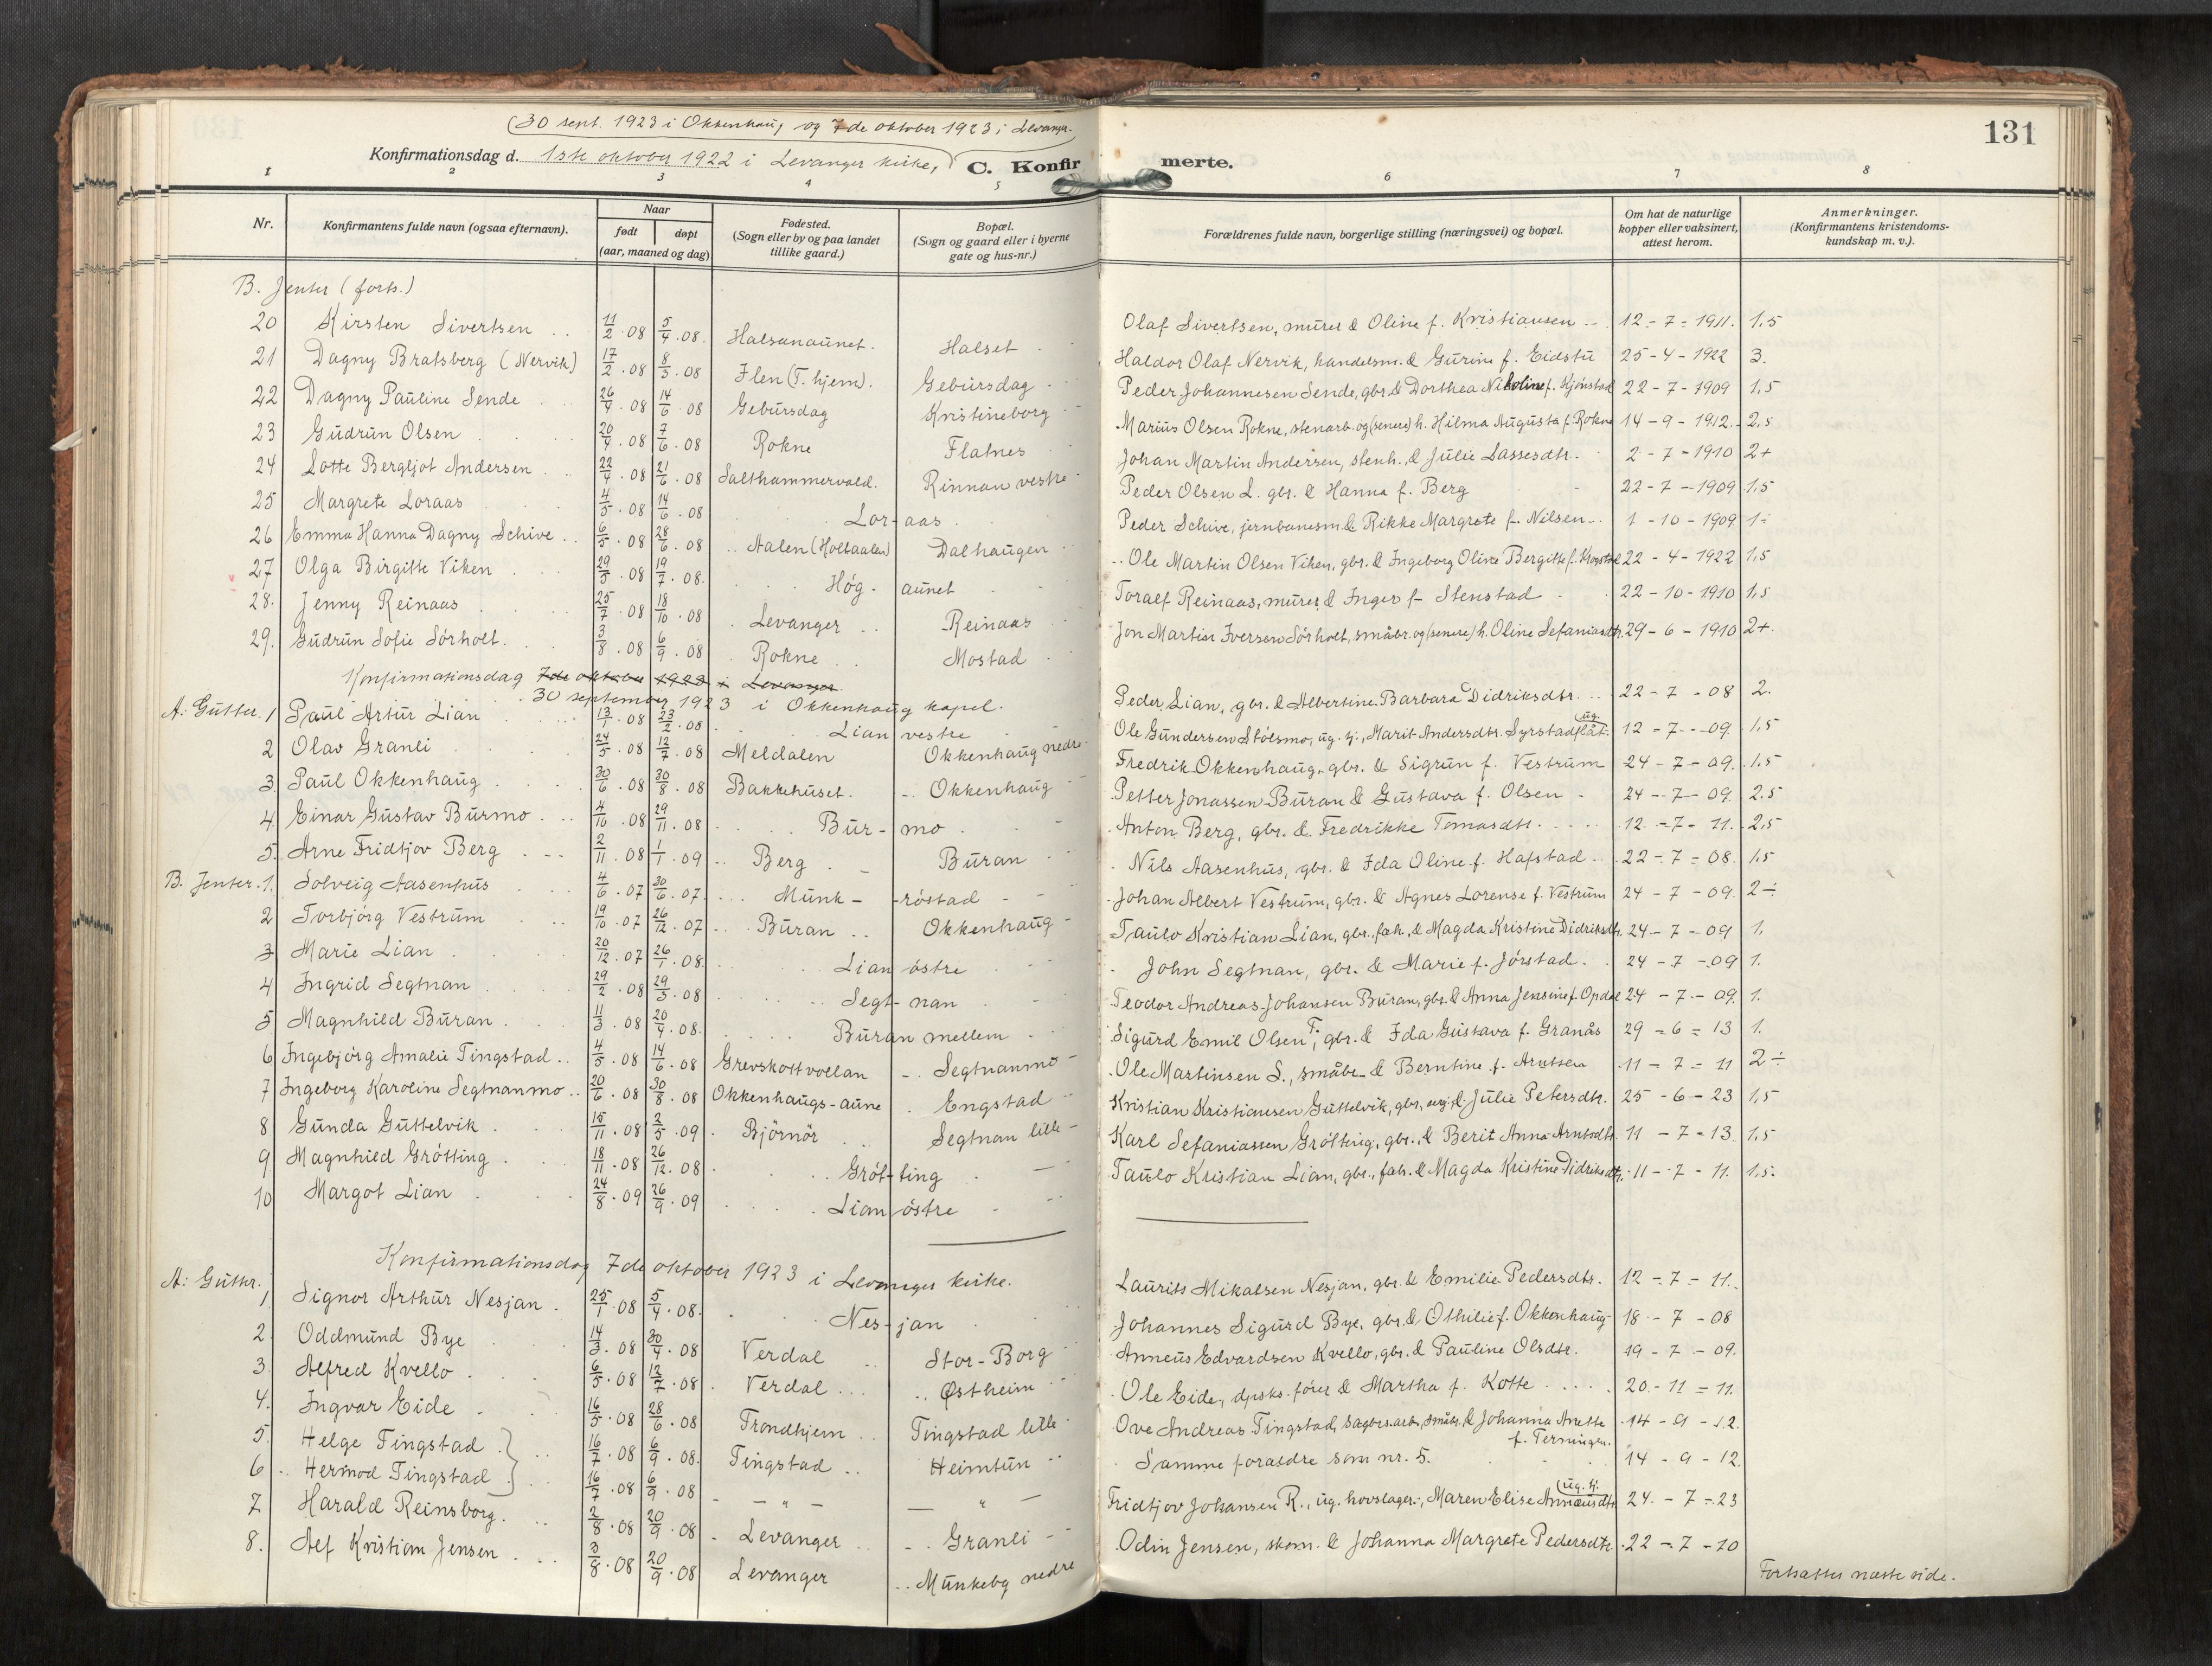 131
(30 sept. 1923 i Okkenhaug og 7de oktober 1923 i Levanger.
Konfirmationsdag d. 1ste oktober 1922 i Levanger kirke, C. Konfirmerte.
1 2 3 4 5 6 7 8
Nr. Konfirmantens fulde navn (ogsaa efternavn). Naar født døpt (aar, maaned og dag) Fødested. (Sogn eller by og paa landet tillike gaard.) Bopæl. (Sogn og gaard eller i byerne gate og hus-nr.) Forældrenes fulde navn, borgerlige stilling (næringsvei) og bopæl. Om hat de naturlige kopper eller vaksinert, attest herom. Anmerkninger. (Konfirmantens kristendomskundskap m. v.).
B. Jenter (forts.)
20 Kirsten Sivertsen 11/2.08 5/4.08. Halsanaunet. Halset Olaf Sivertsen, murer & Oline f. Kristiansen 12-7-1911. 1,5
21 Dagny Bratsberg (Nervik) 17/2.08 8/3.08 Ilen (T.hjem). Gebursdag Haldor Olaf Nervik, handelsm. & Gurine f. Eidstu 25-4-1922 3.
22 Dagny Pauline Sende 26/4.08 14/6.08 Gebursdag Kristineborg Peder Johannesen Sende, gbr. & Dorthea Nikoline f. Kjønstad 22-7-1909 1,5
23 Gudrun Olsen 20/4.08 7/6.08 Rokne Flatnes Marius Olsen Rokne, stenarb. og (senere) h. Hilma Augusta f. Rokne 14-9-1912. 2,5
24 Lotte Bergljot Andersen 22/4.08 21/6.08 Salthammervald. Rinnan vestre Johan Martin Andersen, stenh. & Julie Lassesdtr. 2-7-1910 2+
25 Margrete Loraas 4/5.08 14/6.08 Lor-aas Peder Olsen L. gbr. & Hanna f. Berg 22-7-1909 1,5
26 Emma Hanna Dagny Schive 6/5.08 28/6.08 Aalen (Holtaalen) Dalhaugen Peder Schive, jernbanesm. & Rikke Margrete f. Nilsen 1-10-1909 1÷
27 Olga Birgitte Viken 29/5.08 19/7.08. Høg-aunet Ole Martin Olsen Viken, gbr. & Ingeborg Oline Bergitte f. Krogstad 22-4-1922 1,5
28. Jenny Reinaas 25/7.08 18/10.08 Levanger Reinaas Toralf Reinaas, murer, & Inger f. Stenstad 22-10-1910 1,5
29. Gudrun Sofie Sørholt. 3/8.08 6/9.08 Rokne Mostad Jon Martin Iversen Sørholt, småbr. og (senere) h. Oline Sefaniasdtr. 29-6-1910 2+.
Konfirmationsdag 7de oktober 1923 i Levanger
30 september 1923 i Okkenhaug kapel.
A: Gutter. 1 Paul Artur Lian 13/1.08 23/2.08 Lian vestre Peder Lian, gbr. & Albertine Barbara Didriksdtr. 22-7-08 2.
2 Olav Granli 24/5.08 12/7.08 Meldalen Okkenhaug nedre Ole Gundersen Stølsmo, ug. tj., Marit Andersdtr. Syrstadflåt. (ug. 12-7-09 1,5
3. Paul Okkenhaug 30/6.08 30/8.08 Bakkehuset. Okkenhaug Fredrik Okkenhaug, gbr. & Sigrun f. Vestrum 24-7-09. 1,5
4. Einar Gustav Burmo 4/10.08 29/11.08 Bur-mo Petter Jonassen Buran & Gustava f. Olsen 24-7-09. 2.5
5. Arne Fridtjov Berg 2/11.08 1/1.09 Berg Buran Anton Berg, gbr. & Fredrikke Tomasdtr. 12-7-11. 2,5
B. Jenter. 1. Solveig Aasenhus 4/6.07 30/6.07. Munk-røstad Nils Aasenhus, gbr. & Ida Oline f. Hafstad 22-7-08. 1,5
2 Torbjørg Vestrum 19/10.07 26/12.07 Buran Okkenhaug Johan Albert Vestrum, gbr. & Agnes Lorense f. Vestrum 24-7-09. 2÷
3 Marie Lian 20/12.07 26/1.08. Lian østre Paulo Kristian Lian, gbr., fah. & Magda Kristine Didriksdtr. 24-7-09 1.
4 Ingrid Segtnan 29/2.08 29/3.08 Segt-nan John Segtnan, gbr. & Marie f. Jørstad 24-7-09 1.
5 Magnhild Buran 11/3.08 20/4.08. Buran mellem Teodor Andreas Johansen Buran, gbr. & Anna Jensine f. Opdal 24-7-09. 1.
6 Ingebjørg Amalie Tingstad 4/5.08 14/6.08 Grevskottvollan Segtnanmo Sigurd Emil Olsen T., gbr. & Ida Gustava f. Granås 29-6-13 1.
7 Ingeborg Karoline Segtnanmo 20/6.08 30/8.08 Okkenhaugs-aune Engstad Ole Martinsen S., småbr. & Berntine f. Arntsen 11-7-11 2÷
8 Gunda Guttelvik 15/11.08 2/5.09 Bjørnør Segtnan lille Kristian Kristiansen Guttelvik, gbr., & Julie Petersdtr. 25-6-23 1,5
9 Magnhild Grøtting 18/11.08 26/12.08 Grøt-ting Karl Sefaniassen Grøtting, gbr., & Berit Anna Arntsdtr. 11-7-13. 1,5
10 Margot Lian 24/8.09 26/9.09 Lian østre Paulo Kristian Lian, gbr., fah. & Magda Kristine Didriksdtr. 11-7-11. 1,5.
Konfirmationsdag 7de oktober 1923 i Levanger kirke.
A: Gutter. 1. Signor Arthur Nesjan 25/1.08 5/4.08. Nes-jan Laurits Mikalsen Nesjan, gbr. & Emilie Pedersdtr. 12-7-11.
2. Oddmund Bye 14/3.08 30/4.08 Verdal Stor-Borg Johannes Sigurd Bye, gbr. & Othilie f. Okkenhaug 18-7-08
3. Alfred Kvello 6/5.08 12/7.08 Verdal Østheim Anneus Edvardsen Kvello, gbr. & Pauline Olsdtr. 19-7-09.
4. Ingvar Eide 16/5.08 28/6.08 Trondhjem Tingstad lille Ole Eide, dpsks.fører & Martha f. Kotte 20-11-11.
5. Helge Tingstad 16/7.08 6/9.08. Tingstad Heimtun Ove Andreas Tingstad, sagbr.arb., småbr. & Johanna Anette f. Terningen. 14-9-12.
6 Hermod Tingstad 16/7.08 6/9.08 — " — — " — Samme foraldre som nr. 5. 14-9-12.
7. Harald Reinsborg. 2/8.08 20/9.08 Levanger Granli Fridtjov Johansen R., ug. hovslager, Maren Elise Annæusdtr. (ug. tj. 24-7-23
8. Alf Kristian Jensen 3/8.08 20/9.08 Levanger Munkeby nedre Odin Jensen, skom. & Johanna Margrete Pedersdtr. 22-7-10
Fortsættes næste side.